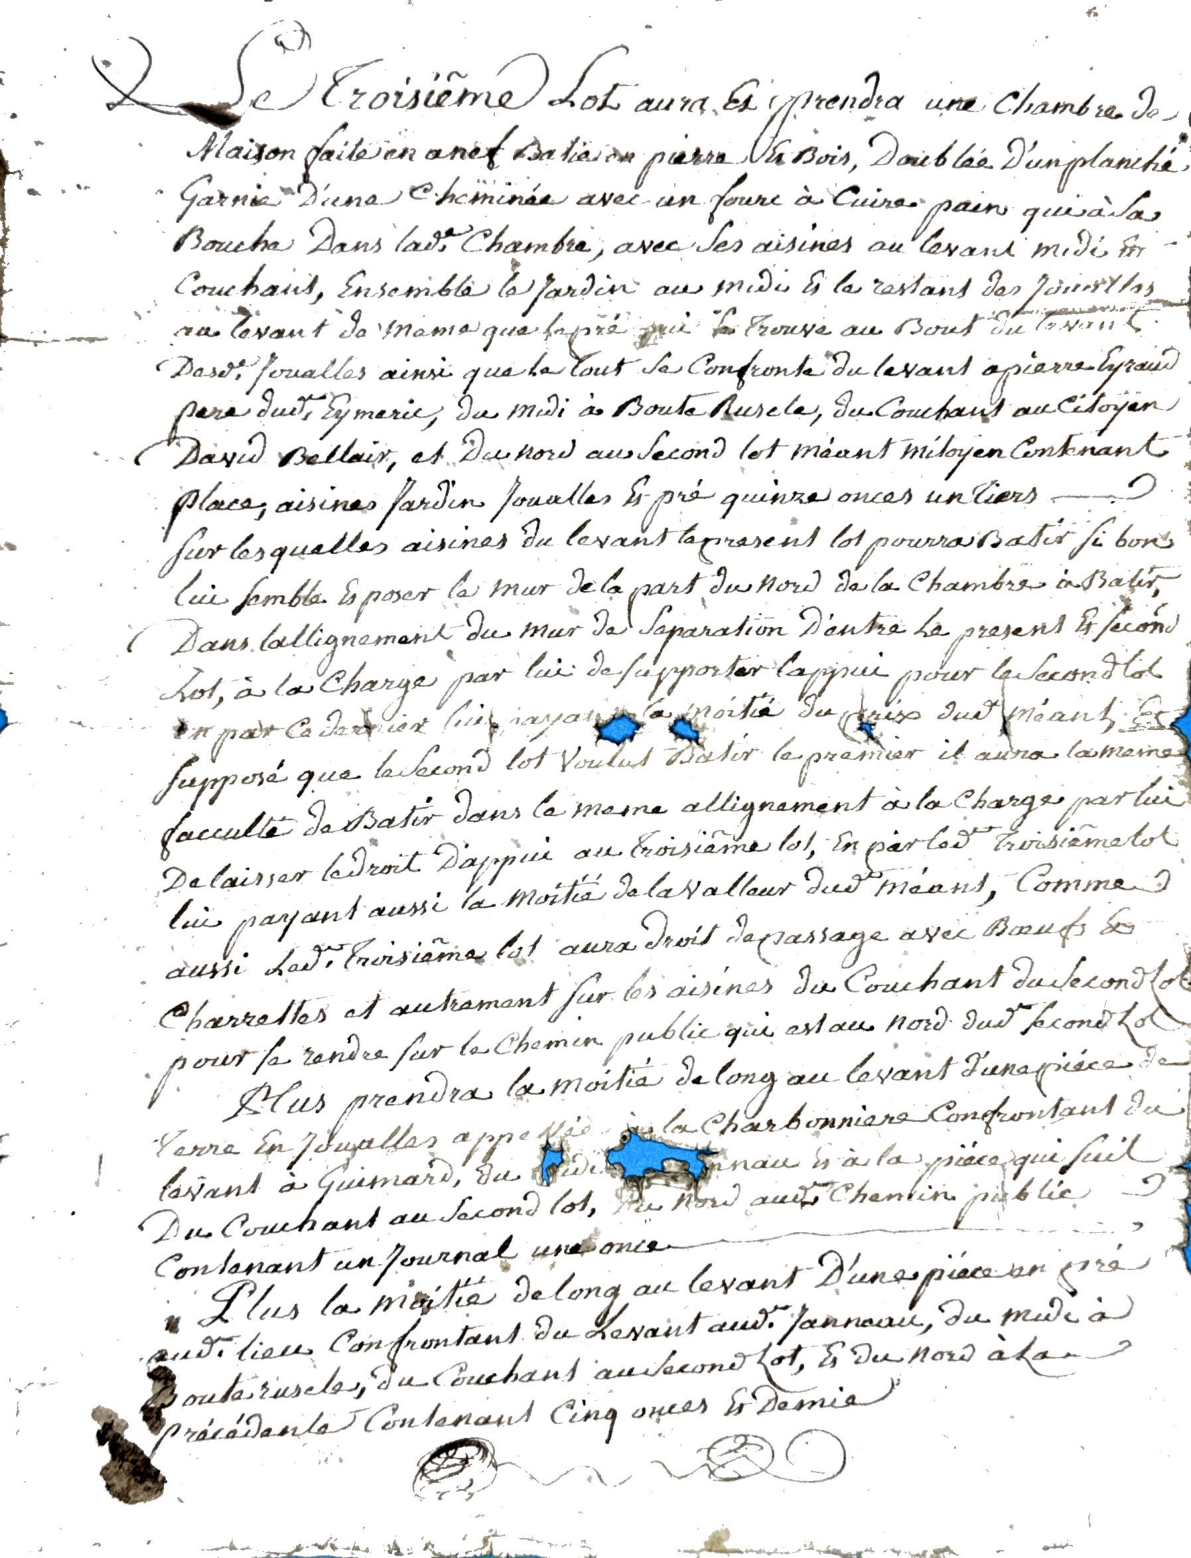 Le Troisiême Lot aura Et prendra une Chambre de
Maison faite en anef Batie en pierre Et Bois, Doublée D'un planché
Garnie D'une Cheminée avec un fourc à Cuire pain qui à sa
Bouche Dans lad.e Chambre, avec ses aisines au levant midi Et
Couchant, Ensemble le Jardin au midi Et le restant des Joualles
au levant de meme que le pré qui se trouve au Bout du levant
Desd.s Joualles ainsi que le tout se Confronte du levant a pierre Eyraud
pere dud.t Eymeric, du midi à Boute Rusele, du Couchant au Citoyen
David Bellair, et Du nord au second lot méant mitoyen Contenant
place, aisines Jardin Joualles Et pré quinze onces un tiers
sur lesquelles aisines du levant le present lot pourra Batir si bon
lui semble Et poser le mur de la part du nord de la Chambre à Batir,
Dans l'allignement du mur de Separation D'entre Le present Et second
Lot, à la Charge par lui de supporter l'appui pour le second lot
en par Ce dernier lui payant la moitié du prix dud.t méant, Et
supposé que le second lot Voulut Batir le premier il aura la meme
facculté de Batir dans le meme allignement à la Charge par lui
De laisser le droit D'appui au troisiême lot, En par led.t troisiême lot
lui payant aussi la moitié de la valleur dud.t méant, Comme
aussi Led.t troisiême lot aura droit de passage avec Bœufs Et
Charrettes et autrement sur les aisines du Couchant du second Lot
pour se rendre sur le Chemin public qui est au nord dud.t second Lot
Plus prendra la moitié de long au levant d'une piéce de
terre En Joualles appellée la Charbonniere Confrontant du
levant à Guimard, du midi Et à la piéce qui suit
Du Couchant au second lot, Du nord aud.t Chemin public
Contenant un Journal une once
Plus la moitié de long au levant D'une piéce en pré
aud.t lieu Confrontant du Levant aud.t Janneau, du midi à
Boute rusele, du Couchant au second Lot, Et du nord à La
précédente Contenant Cinq onces Et Demie